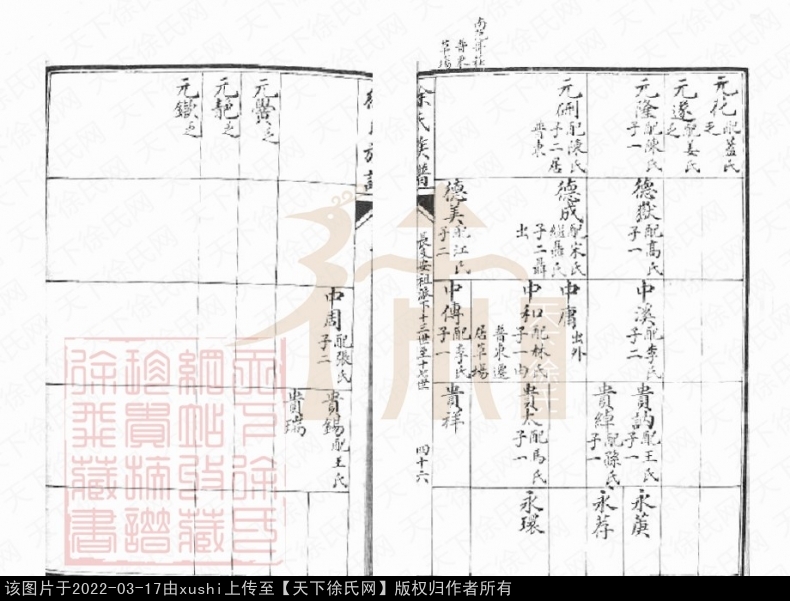 南公澤社
普東
草場
元化配藍氏
乏
元遂配姜氏
乏
元隆配陳氏
子一
元硎配陳氏
子二居
普東
德嶽配高氏
子一
德成配宋氏
繼聶氏
子二聶
出
德美配江氏
子二
中溪配李氏
子二
中庸出外
中和配林氏
子一由
普東遷
居草場
中傳配李氏
子一
貴訥配王氏
子一
貴綽配滕氏
子一
貴太配馬氏
子一
貴祥
永茰
永荐
永環
徐氏族譜
長支安祖派下十三世至十六世
四十六
元乏
元靜乏
元鐵乏
中周配張氏
子二
貴錫配王氏
貴瑞
天下徐氏网
天下徐氏
網站收藏
珍貴譜
徐
藏書
该图片于2022-03-17由xushi上传至【天下徐氏网】版权归作者所有